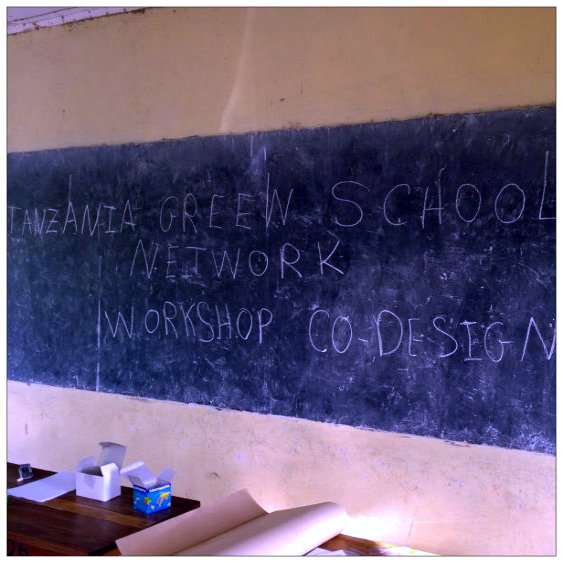 TANZANIA GREEN SCHOOL
NETWORK
WORKSHOP CO-DESIGN